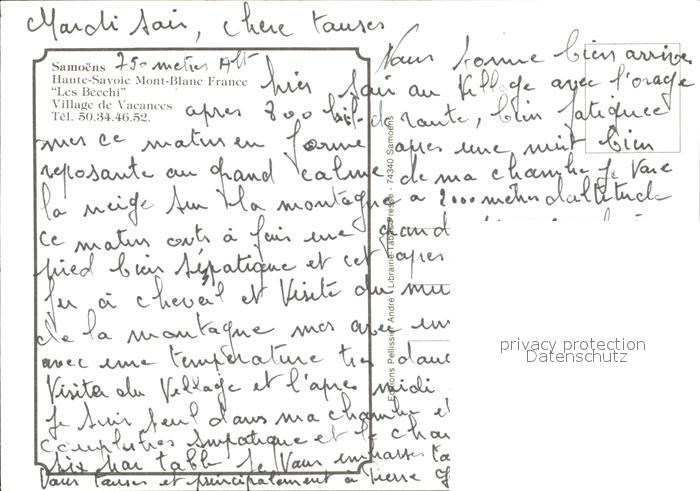 Mardi soir, chere tauses
Samoëns 750 metres Alt
Haute-Savoie Mont-Blanc France
"Les Becchi"
Village de Vacances
Tél. 50.34.46.52.
Nous somme bien arrivee
hier soir au Village avec l'orage
apres 800 kil. de route, bien fatiguee
mes ce matin en forme apres une nuit bien
reposante au grand calme de ma chambre je voie
la neige sur la montagne a 2000 mètres d'altitude
ce matin on à fais une grand
pied bien sipatique et cet apres
fer à cheval et Visite du mu
de la montagne mes avec un
avec une température tres douc
Visite du Village et l'apres midi
je suis seul dans ma chambre et
sinpatique et le cha
six par table je Vous embrasses ta
Vous tauses et principalement à Pierre
Editions Pellissier André - Librairie-Tabac-Presse - 74340 Samoëns
privacy protection
Datenschutz